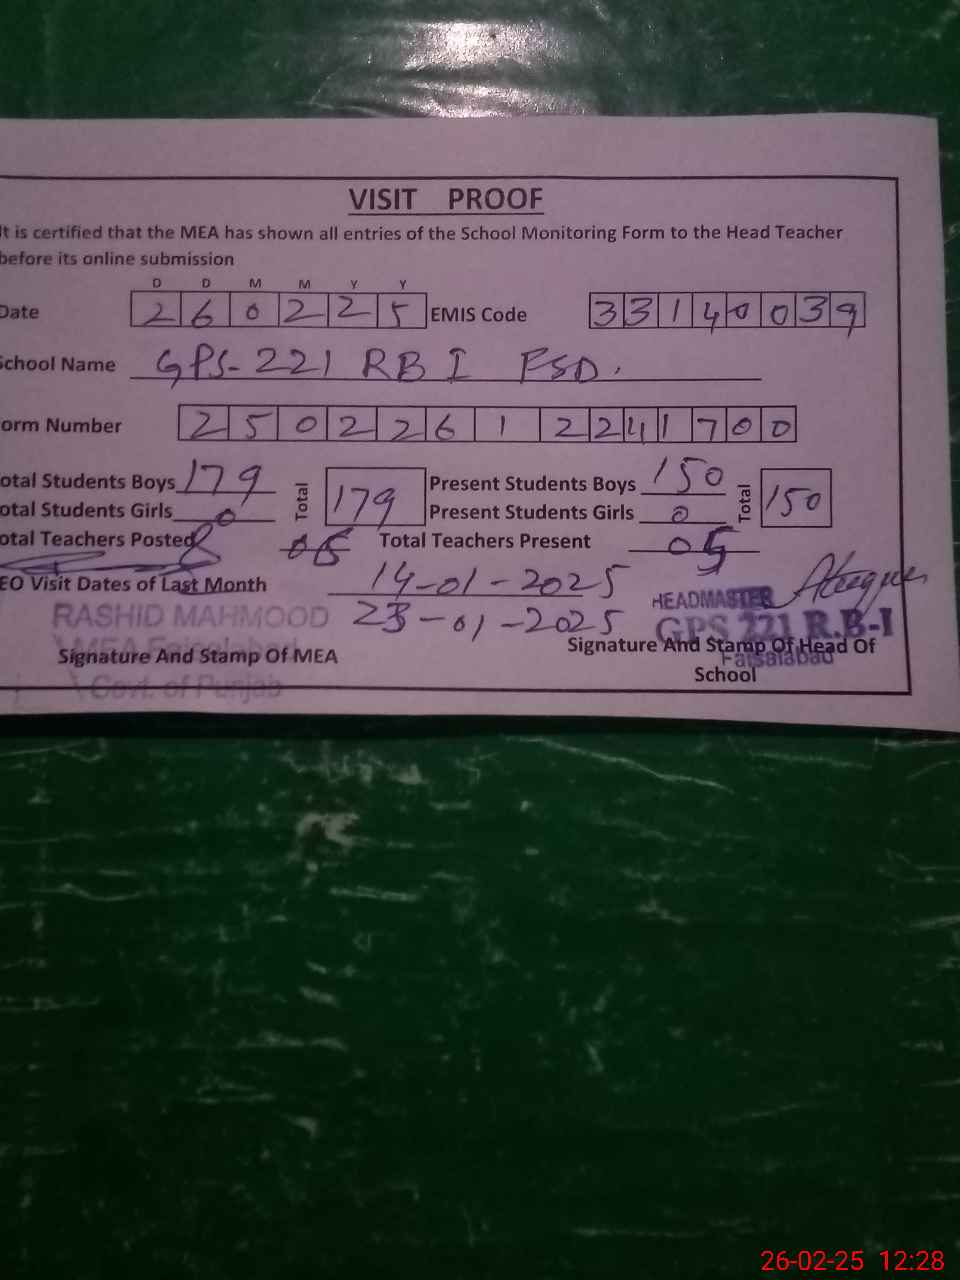 VISIT PROOF
It is certified that the MEA has shown all entries of the School Monitoring Form to the Head Teacher
before its online submission
D D M M Y Y
Date 2 6 0 2 2 5 EMIS Code 3 3 1 4 0 0 3 9
School Name GPS-221 RB I FSD.
orm Number 2 5 0 2 2 6 1 2 2 4 1 7 0 0
otal Students Boys 179 Total 179 Present Students Boys 150 Total 150
otal Students Girls 0 Present Students Girls 0
otal Teachers Posted Total Teachers Present 05
EO Visit Dates of Last Month 14-01-2025
23-01-2025
HEADMASTER
GPS 221 R.B-I
Faisalabad
RASHID MAHMOOD
MEA Faisalabad
Govt. of Punjab
Signature And Stamp Of MEA
Signature And Stamp Of Head Of
School
26-02-25 12:28